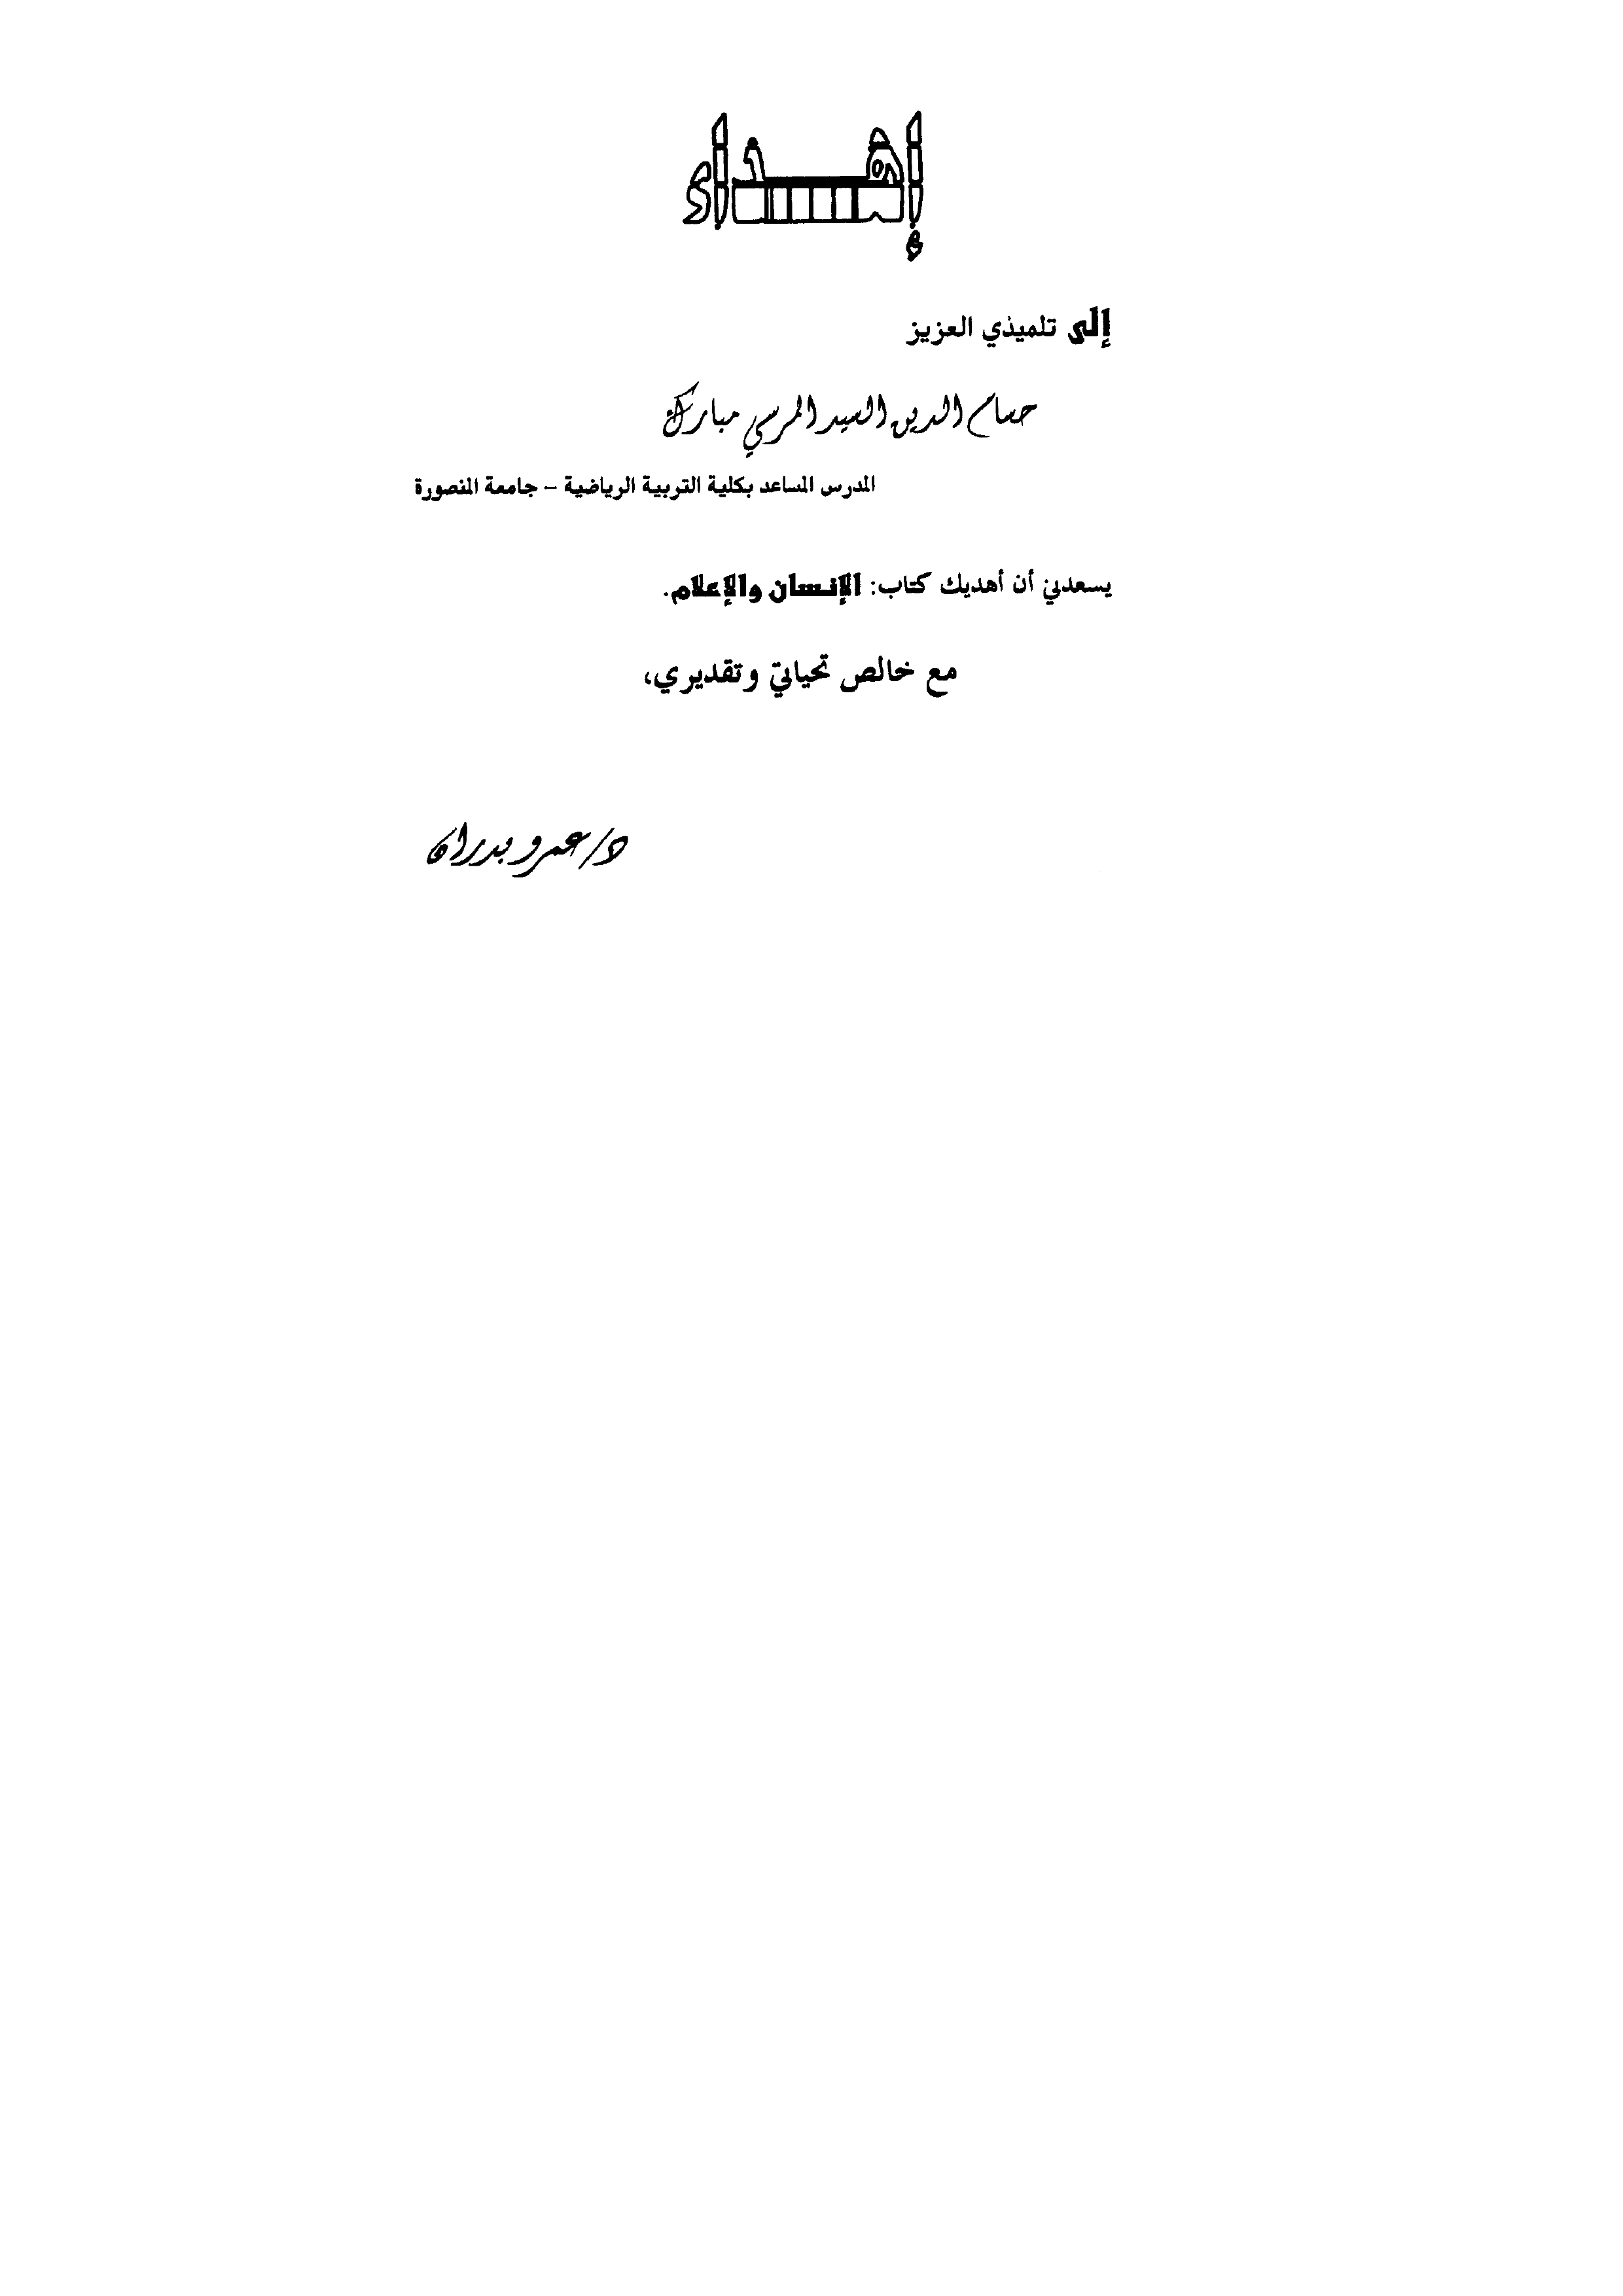 إهداء
إلى تلميذي العزيز
حسام الدين السيد المرسي مبارك
المدرس المساعد بكلية التربية الرياضية – جامعة المنصورة
يسعدني أن أهديك كتاب: الإنسان والإعلام.
مع خالص تحياتي وتقديري،
د/عمرو بدران